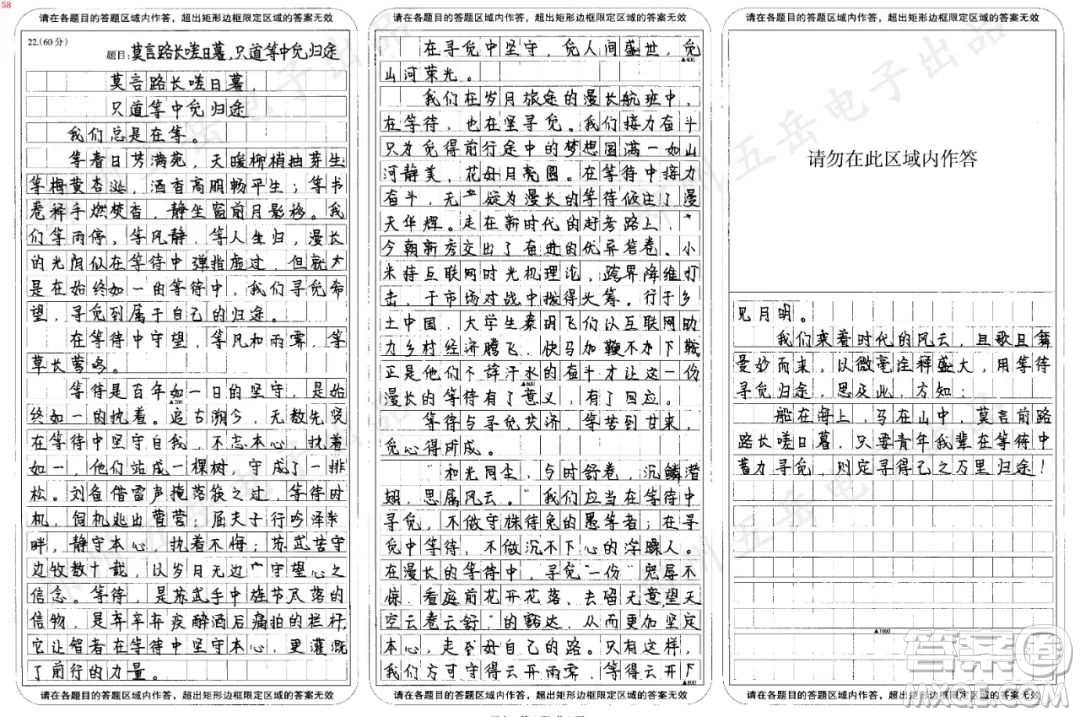 58
请在各题目的答题区域内作答，超出矩形边框限定区域的答案无效
22.(60分)
题目：莫言路长嗟日暮，只道等中觅归途
莫言路长嗟日暮，
只道等中觅归途
我们总是在等。
等着日芳满苑，天暖柳梢抽芽生
等梅黄杏涎，酒香高朋畅平生；等书
卷释手燃焚香，静坐窗前月影移。我
们等雨停，等风静，等人生归，漫长
的光阴似在等待中弹指虚过，但就
是在始终如一的等待中，我们寻觅希
望，寻觅到属于自己的归途。
在等待中守望，等风和雨霁，等
草长莺鸣。
等待是百年如一日的坚守，是始
终如一的执着。追古溯今，无数先贤
在等待中坚守自我，不忘本心，执着
如一，他们站成一棵树，守成了一排
松。刘备借雷声掩落筷之过，等待时
机，伺机逃出曹营；屈夫子行吟泽
畔，静守本心，执着不悔；苏武苦守
边牧数十载，以岁月无边守望心之
信念。等待，是苏武手中旌节尽落的
信物，是辛弃疾醉酒后痛拍的栏杆，
它让智者在等待中坚守本心，更灌溉
了前行的力量。
请在各题目的答题区域内作答，超出矩形边框限定区域的答案无效
请在各题目的答题区域内作答，超出矩形边框限定区域的答案无效
在寻觅中坚守，觅人间盛世，觅
山河荣光。
我们在岁月旅途的漫长航班中，
在等待，也在坚寻觅。我们接力奋斗
只为觅得前行途中的梦想圆满一如山
河静美，花好月亮圆。在等待中接力
奋斗，无疑为漫长的等待倾注了漫
天华辉。走在新时代的赶考路上，
今朝新秀交出了奋进的优异答卷。小
米持互联网时光机理论，跨界降维打
击，于市场对战中拔得头筹。行于乡
土中国，大学生秦玥飞们以互联网助
力乡村经济腾飞，快马加鞭不下鞍
正是他们不辞汗水的奋斗才让这一份
漫长的等待有了意义，有了回应。
等待与寻觅共济，等苦到甘来，
觅心得所成。
“和光同尘，与时舒卷，沉鳞潜
翅，思属风云。”我们应当在等待中
寻觅，不做守株待兔的愚等者；在寻
觅中等待，不做沉不下心的浮躁人。
在漫长的等待中，寻觅一份“宠辱不
惊，看庭前花开花落，去留无意望天
空云卷云舒”的豁达，从而更加坚定
本心，走好自己的路。只有这样，
我们方可守得云开雨霁，等待云开
▲400
▲600
▲800
请在各题目的答题区域内作答，超出矩形边框限定区域的答案无效
请在各题目的答题区域内作答，超出矩形边框限定区域的答案无效
请勿在此区域内作答
见月明。
我们乘着时代的风云，且歌且舞
曼妙而来，以微毫注释盛大，用等待
寻觅归途，思及此，方知：
船在海上，马在山中，莫言前路
路长嗟日暮，只要青年我辈在等待中
蓄力寻觅，则定寻得己之万里归途！
▲1000
请在各题目的答题区域内作答，超出矩形边框限定区域的答案无效
五岳电子出品
答案圈